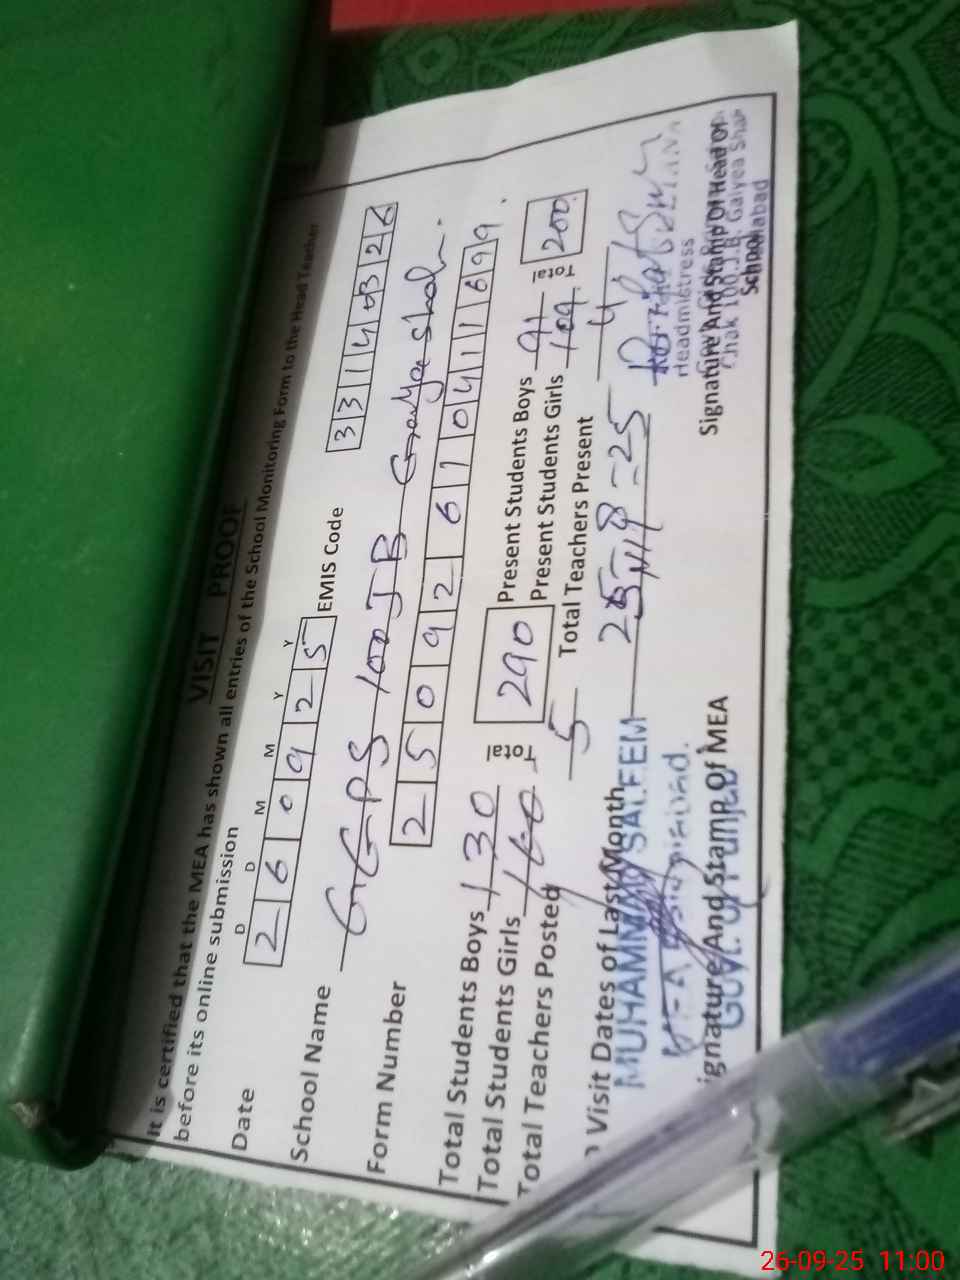 VISIT PROOF
It is certified that the MEA has shown all entries of the School Monitoring Form to the Head Teacher
before its online submission
D D M M Y Y
Date 2 6 0 9 2 5 EMIS Code 3 3 1 4 0 3 2 6
School Name GGPS 100 JB Gayya Shah.
Form Number 2 5 0 9 2 6 1 0 4 1 1 6 9 9.
Total Students Boys 130 Total 290 Present Students Boys 91 Total 200
Total Students Girls 160 Present Students Girls 109
Total Teachers Posted 5 Total Teachers Present 4
Visit Dates of Last Month 25-8-25
MUHAMMAD SALEEM
Headmistress
ignature And Stamp Of MEA Signature And Stamp Of Head Of
School
Govt. Of Punjab
Chak 100 J.B. Gaiyea Shah
26-09-25 11:00